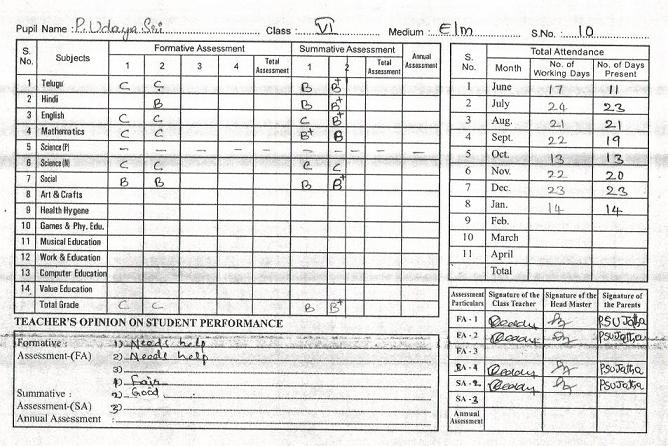 Pupil Name : P. Udaya Sri Class : VI Medium : E/m S.No. : 10
S. No. Subjects Formative Assessment Summative Assessment Annual Assessment
1 2 3 4 Total Assessment 1 2 Total Assessment
1 Telugu C C B B+
2 Hindi B B B+
3 English C C C B+
4 Mathematics C C B+ B
5 Science (P) – – – – – – – – –
6 Science (N) C C C C
7 Social B B B B+
8 Art & Crafts
9 Health Hygene
10 Games & Phy. Edu.
11 Musical Education
12 Work & Education
13 Computer Education
14 Value Education
Total Grade C C B B+
TEACHER'S OPINION ON STUDENT PERFORMANCE
Formative : 1) Needs help
Assessment-(FA) 2) Needs help
3)
1) Fair
Summative : 2) Good
Assessment-(SA) 3)
Annual Assessment :
S. No. Total Attendance
Month No. of Working Days No. of Days Present
1 June 17 11
2 July 24 23
3 Aug. 21 21
4 Sept. 22 19
5 Oct. 13 13
6 Nov. 22 20
7 Dec. 23 23
8 Jan. 14 14
9 Feb.
10 March
11 April
Total
Assessment Particulars Signature of the Class Teacher Signature of the Head Master Signature of the Parents
FA - 1 Reddy P.SUJatha
FA - 2 Reddy P.SUJatha
FA - 3
Reddy P.SUJatha
SA - 2 Reddy P.SUJatha
SA - 3
Annual Assessment